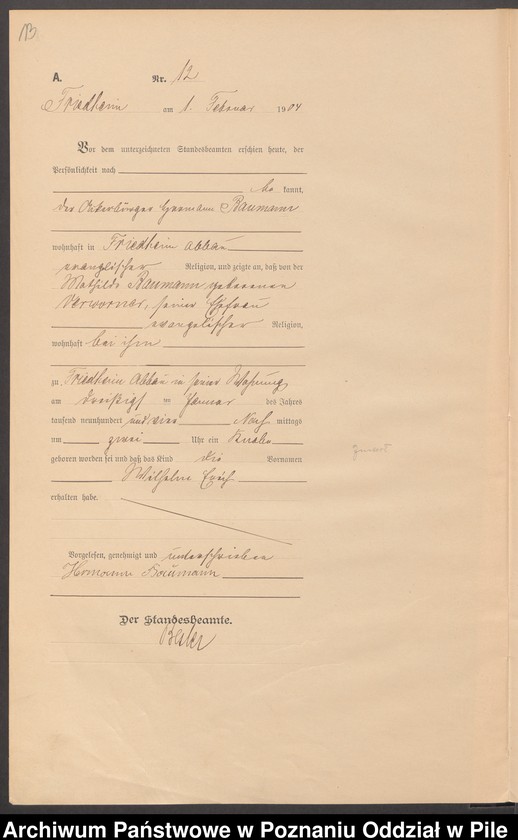 A.
Nr. 12
Friedheim am 1. Februar 1904
Vor dem unterzeichneten Standesbeamten erschien heute, der
Persönlichkeit nach
be kannt,
der Ackerbürger Hermann Baumann
wohnhaft in Friedheim Abbau
evangelischer Religion, und zeigte an, daß von der
Mathilde Baumann geborenen
seiner Ehefrau
evangelischer Religion,
wohnhaft bei ihm
zu Friedheim Abbau in seiner Wohnung
am dreißigsten Januar des Jahres
tausend neunhundert und vier Nach mittags
um zwei Uhr ein Knabe
geboren worden sei und daß das Kind die Vornamen
Wilhelm Erich
erhalten habe.
Vorgelesen, genehmigt und unterschrieben
Hermann Baumann
Der Standesbeamte.
Archiwum Państwowe w Poznaniu Oddział w Pile